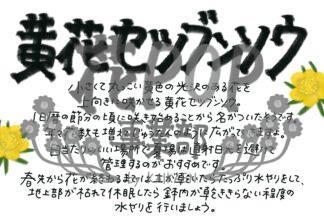 黄花セツブンソウ
小さくて丸っこい黄色の光沢のある花を
上向きに咲かせる黄花セツブンソウ。
旧暦の節分の頃に咲き始めることから名がついたそうです。
年々花数も増えじゅうたんのように広がってきますよ。
日当たりのいい場所で夏場は直射日光を避けて
管理するのがおすすめです
春先から花が終わるまでは土が乾いたらたっぷり水やりをして、
地上部が枯れて休眠したら鉢内が乾ききらない程度の
水やりを行いましょう。
POP